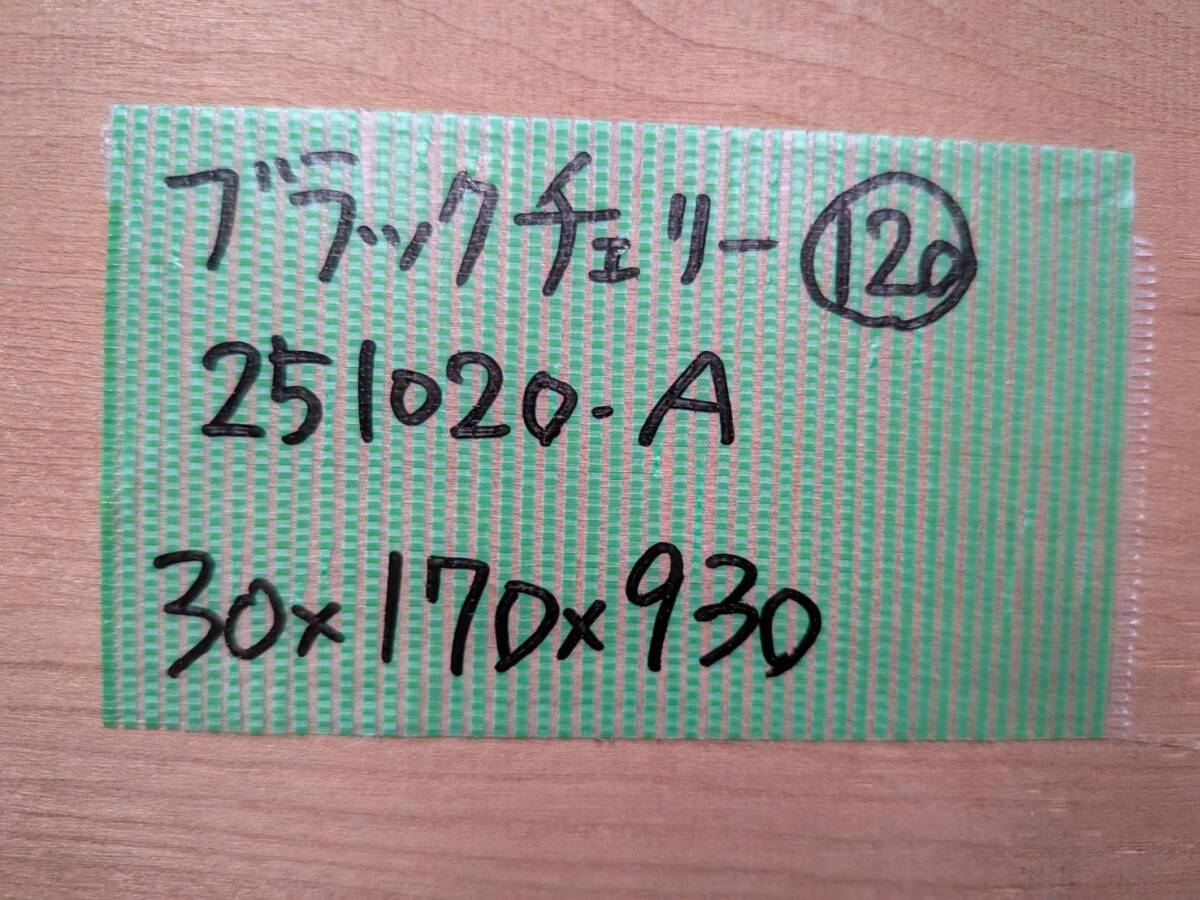 ブラックチェリー 120
251020-A
30×170×930